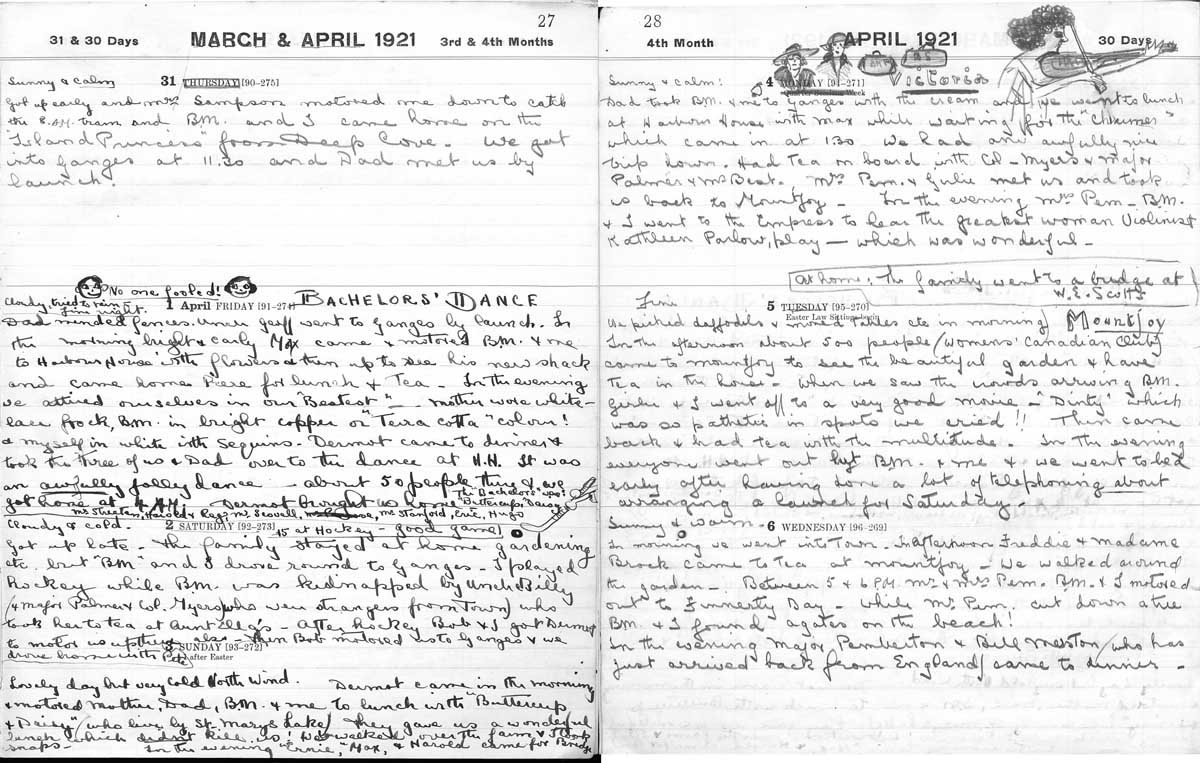 27
31 & 30 Days MARCH & APRIL 1921 3rd & 4th Months
Sunny & calm 31 THURSDAY [90-275]
Got up early and Mrs Sampson motored me down to catch
the 8. A.M. train and B.M. and I came home on the
"Island Princess" from Deep Cove. We got
into Ganges at 11.30 and Dad met us by
launch.
No one fooled!
Cloudy, tried to rain
Fine night.
1 April FRIDAY [91-274] BACHELORS' DANCE
Dad mended fences. Uncle Geoff went to Ganges by launch. In
the morning bright & early Max came & motored B.M. & me
to Harbour House with flowers & then up to see his new shack
and came home here for lunch & Tea - In the evening
we attired ourselves in our "Beatest" - Mother wore white-
lace frock, B.M. in bright copper or "Terra cotta" colour!
& myself in white with sequins. Dermot came to dinner &
took the three of us & Dad over to the dance at H.H. It was
an awfully jolley dance - about 50 people there & we
got home at 4 AM. Dermot brought us home
The Bachelors were:
"Buttercup, Daisy
Mr Streeten, Harold & Ragg, Mr Seovell, Mr Stanford, Eric, Hugo
Cloudy & cold. 2 SATURDAY [92-273] 45 at Hockey - good game
Got up late - the family stayed at home gardening
etc. but "BM" and I drove round to Ganges - I played
hockey while B.M. was kidnapped by Uncle Billy
(& Major Palmer & Col. Myers) who were strangers from Town) who
took her to tea at - After hockey Bob & I got Dermot
to motor us up there also - then Bob motored us to Ganges & we
drove home with
3 SUNDAY [93-272]
after Easter
Lovely day but very cold North Wind. Dermot came in the morning
& motored Mother, Dad, B.M. & me to lunch with "Buttercup
& Daisy" (who live by St. Mary's Lake) They gave us a wonderful
lunch which didn't kill us! We walked over the farm & I took
snaps - In the evening "Ernie," Max, & Harold came for Bridge
28
4th Month APRIL 1921 30 Days
Sunny & calm: 4 MONDAY [91-271] Victoria
Dad took B.M. & me to Ganges with the cream and we went to lunch
at Harbour House with Max while waiting for the "Charmer"
which came in at 1.30 We had an awfully nice
trip down. Had tea on board with Col - Myers & Major
Palmer & Mr Best. Mrs Pem. & Girlie met us and took
us back to Mountjoy - In the evening Mrs Pem - B.M.
& I went to the Empress to hear the greatest woman Violinist
Kathleen Parlow, play - which was wonderful -
At home: The family went to a bridge at
W.E. Scotts
Fine 5 TUESDAY [95-270] Mountjoy
Easter Law Sittings begin
We picked daffodils & moved tables etc in morning
In the afternoon about 500 people (Womens' Canadian Club)
came to Mountjoy to see the beautiful garden & have
Tea in the house - When we saw the hoards arriving BM.
Girlie & I went off to a very good movie - "Dinty" which
was so pathetic in spots we cried!! Then came
back & had tea with the multitude. In the evening
everyone went out but B.M. & me & we went to bed
early after having done a lot of telephoning about
arranging a launch for Saturday.
Sunny & warm. 6 WEDNESDAY [96-269]
In morning we went into Town. In afternoon Freddie & Madame
Brock came to Tea at Mountjoy - We walked around
the garden - Between 5 & 6 P.M. Mr & Mrs Pem. B.M. & I motored
out to Finnerty Bay - While Mr Pem. cut down a tree
B.M. & I found agates on the beach!
In the evening Major Pemberton & Bill Merston (who has
just arrived back from England) came to dinner -